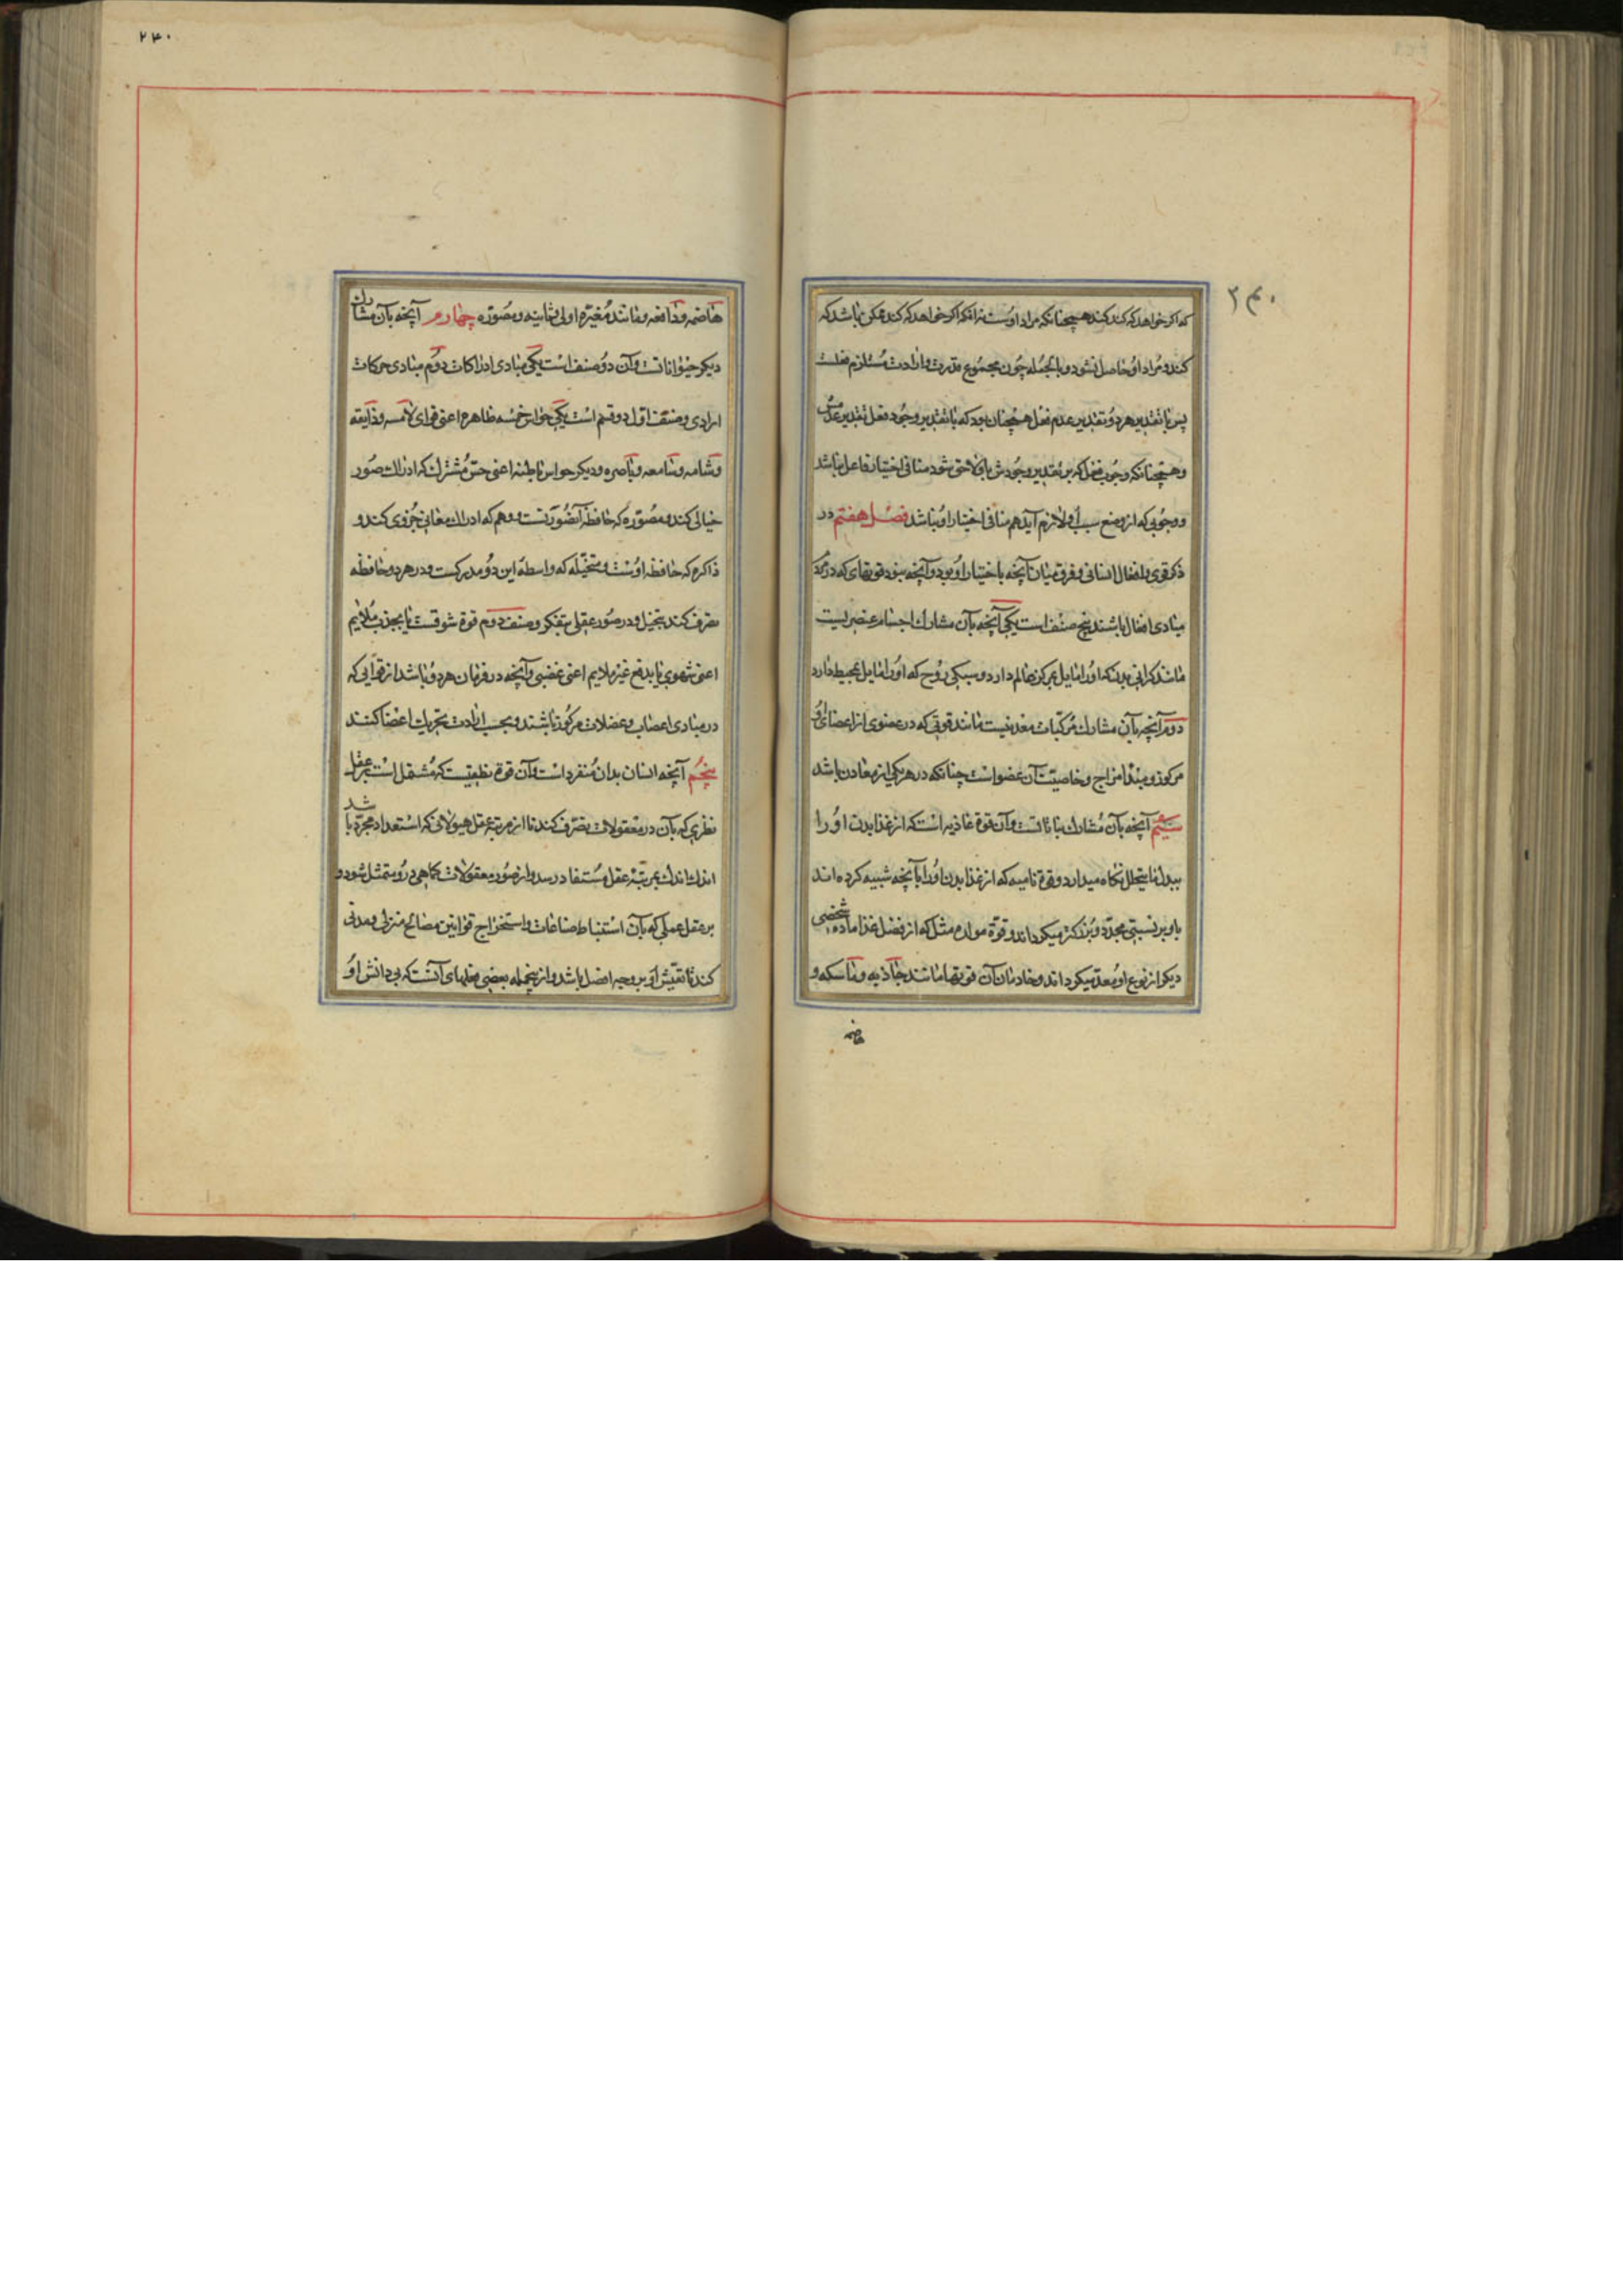 ۲۴۰
که اگر خواهد که کند کند همچنانکه مراد اوست نه آنکه اگر خواهد که کند ممکن نباشد که
کند و مراد او حاصل نشود و بالجمله چون مجموع قدرت و ارادت مستلزم فعلست
پس با تقدیر هر دو تقدیر عدم فعل همچنان بود که با تقدیر وجود فعل تقدیر عدمش
و همچنانکه وجوب فعل که بر تقدیر وجودش باو لاحق شود منافی اختیار فاعل نباشد
و وجوبی که از وضع سبب او لازم آید هم منافی اختیار او نباشد فصل هفتم در
ذکر قوی و افعال انسانی و فرق میان آنچه باختیار او بود و آنچه نبود قوتهای که در
مبادی افعال باشند پنج صنف است یکی آنچه بآن مشارک اجسام عنصریست
مانند گرانی بدنکه او را مایل بمرکز عالم دارد و سبکی روح که او را مایل بمحیط دارد
دوم آنچه بآن مشارک مرکبات معدنیست مانند قوتی که در عضوی از اعضای او
مرکوز و مبدا مزاج و خاصیت آن عضو است چنانکه در هر یکی از معادن باشد
سیم آنچه بآن مشارک نباتاتست و آن قوة غاذیه است که از غذا بدن او را
بدل ما یتحلل نگاه میدارد و قوة نامیه که از غذا بدن او را بآنچه شبیه کرده اند
باو بر نسبتی مجدد بزرگتر میگرداند و قوة مولده مثل که از فضل غذا ماده شخصی
دیگر از نوع او معد میگرداند و خادمان آن قوتها مانند جاذبه و ماسکه و
هاضمه
۲۴۰
هاضمه و دافعه و مانند مغیره اولی و ثانیه و مصوره چهارم آنچه بآن مشارک
دیگر حیواناتست و آن دو صنف است یکی مبادی ادراکات دوم مبادی حرکات
ارادی و صنف اول دو قسم است یکی حواس خمسه ظاهره اعنی قوای لامسه و ذایقه
و شامه و سامعه و باصره و دیگر حواس باطنه اعنی حس مشترک که ادراک صور
خیالی کند و مصوره که حافظه آنصورتست و وهم که ادراک معانی جزوی کند و
ذاکره که حافظه اوست و متخیله که واسطه این دو مدرکست و در هر دو حافظه
تصرف کند بتخیل و در صور عقلی بتفکر و صنف دوم قوة شوقست یا بجذب ملایم
اعنی شهوی یا بدفع غیر ملایم اعنی غضبی و آنچه در فرمان هر دو باشد از قوایی که
در مبادی اعصاب و عضلات مرکوز باشند و بحسب ارادت تحریک اعضا کنند
پنجم آنچه انسان بدان منفرد است و آن قوة نطقیست که مشتمل است بر عقل
نظری که بآن در معقولات تصرف کند تا از مرتبه عقل هیولانی که استعداد مجرد باشد
اندک اندک بمرتبه عقل مستفاد رسد و از صور معقولات کماهی در و متمثل شود و
بر عقل عملی که بآن استنباط صناعات و استخراج قوانین مصالح منزلی و مدنی
کند تا تعیش او بر وجه افضل باشد و از پنجمله بعضی فعلهای آنست که بی دانش او